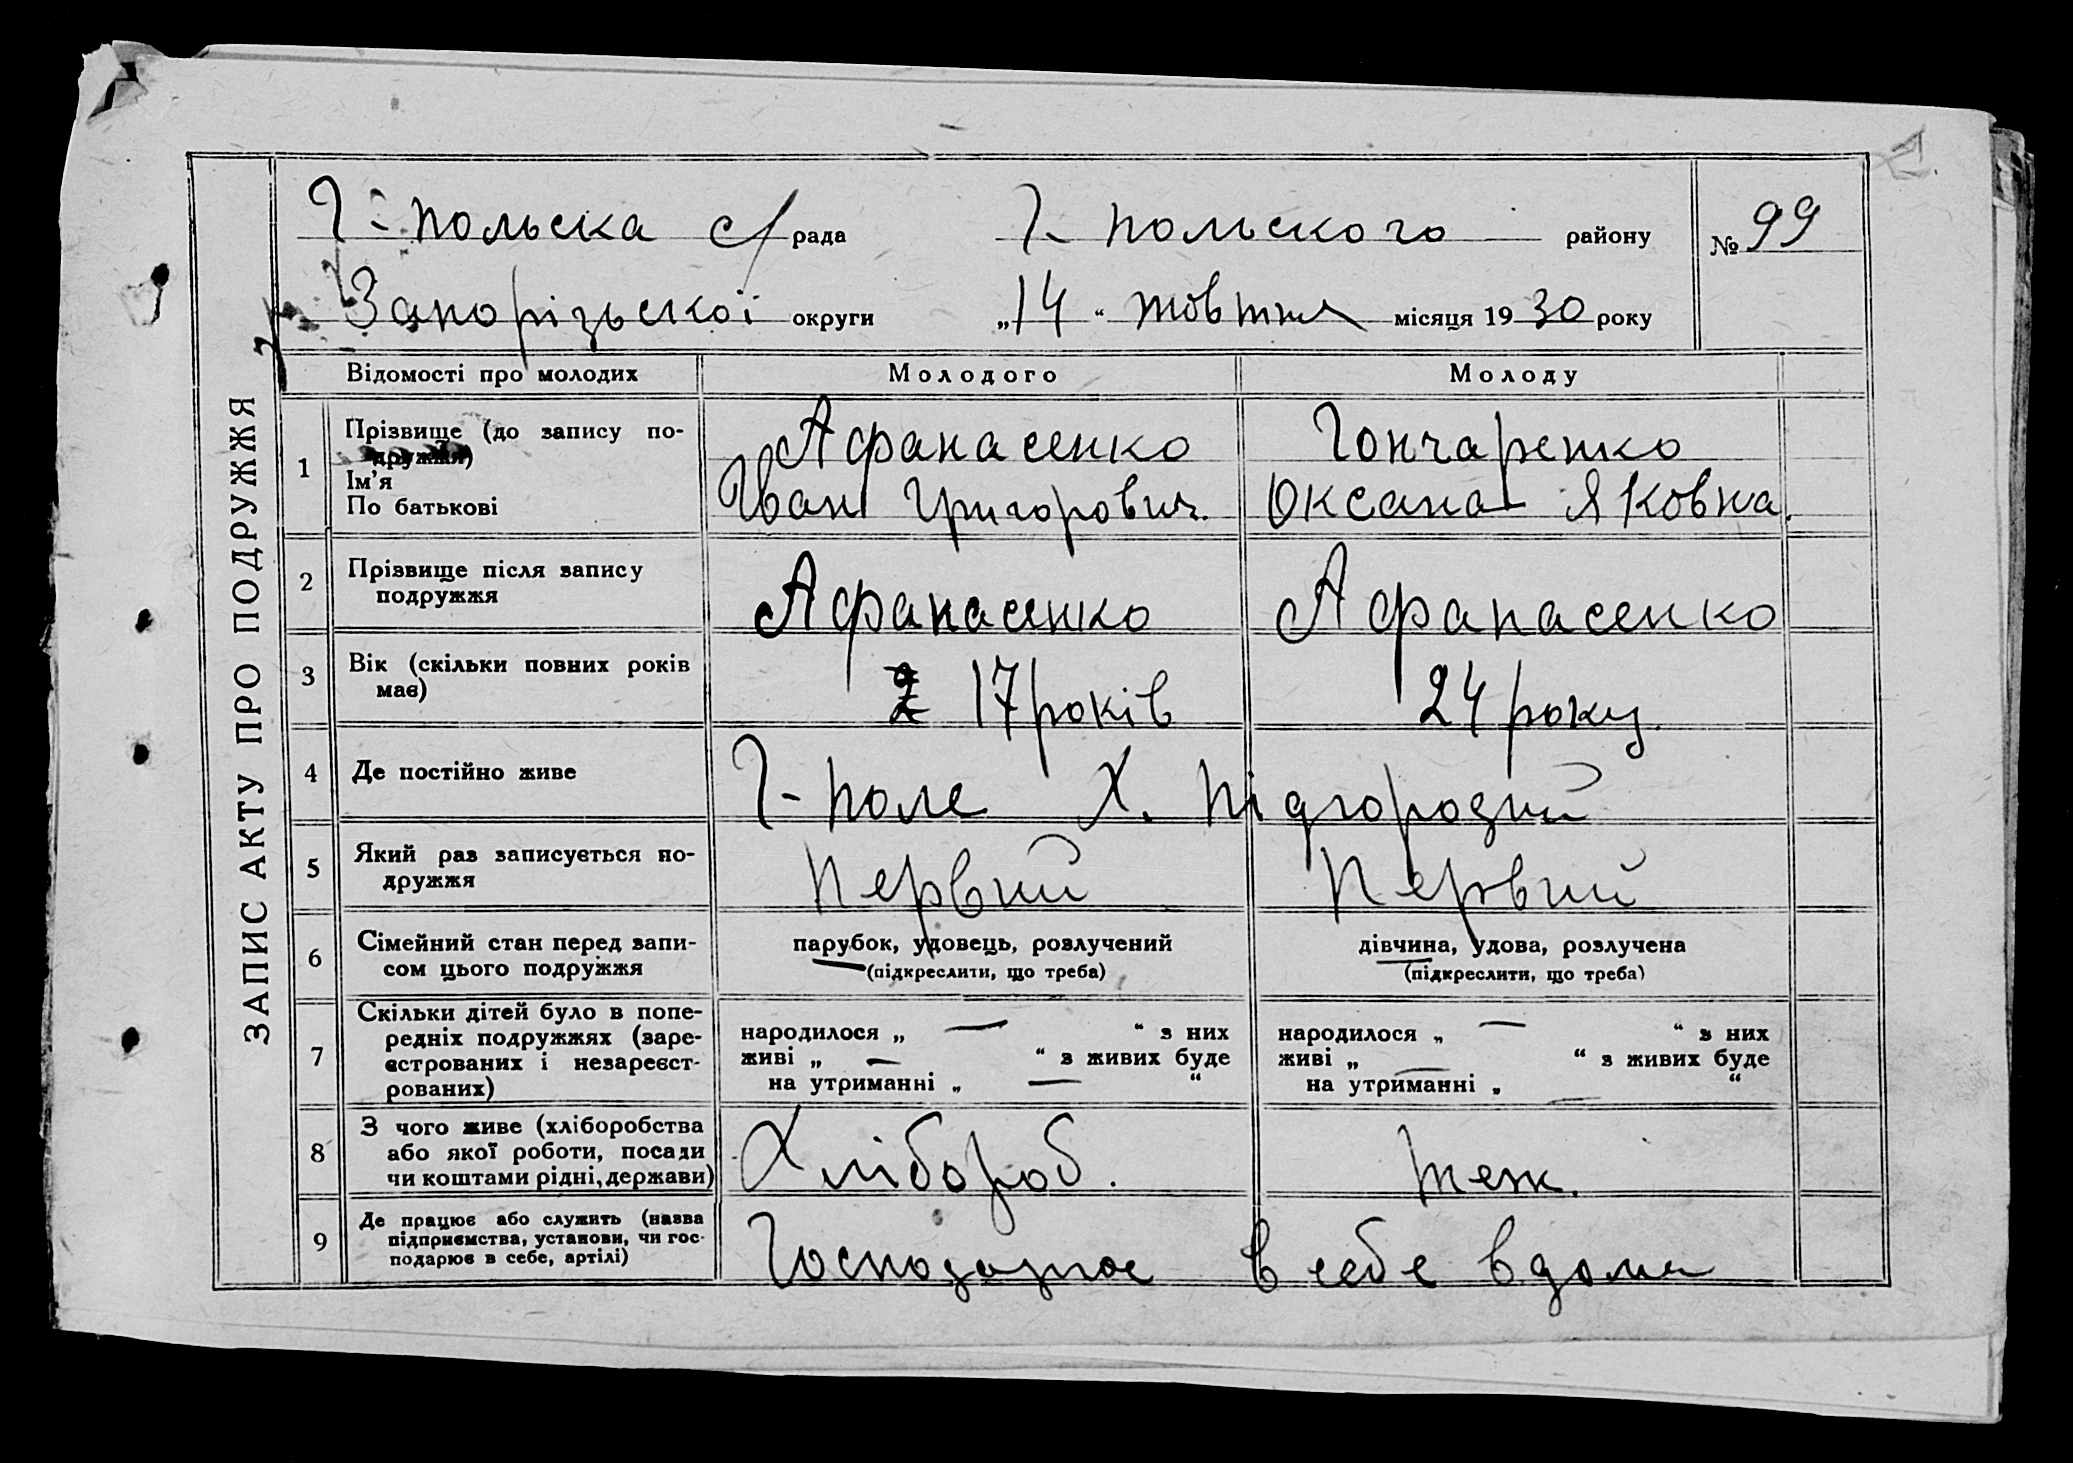 ЗАПИС АКТУ ПРО ПОДРУЖЖЯ
Г-польска с/рада Г-польского району № 99
Запорізської округи „14“ жовтня місяця 1930 року
Відомості про молодих Молодого Молоду
1 Прізвище (до запису по-
дружжя)
Ім'я
По батькові
Афанасенко
Іван Григорович.
Гончаренко
Оксана Яковна.
2 Прізвище після запису
подружжя
Афанасенко Афанасенко
3 Вік (скільки повних років
має)
17 років 24 року
4 Де постійно живе Г-поле Х. Підгородний
5 Який раз записується по-
дружжя
Первий Первий
6 Сімейний стан перед запи-
сом цього подружжя
парубок, удовець, розлучений
(підкреслити, що треба)
дівчина, удова, розлучена
(підкреслити, що треба)
7 Скільки дітей було в попе-
редніх подружжях (заре-
єстрованих і незареєст-
рованих)
народилося „ — “ з них
живі „ — “ з живих буде
на утриманні „ — “
народилося „ — “ з них
живі „ — “ з живих буде
на утриманні „ — “
8 З чого живе (хліборобства
або якої роботи, посади
чи коштами рідні, держави)
Хлібороб. теж.
9 Де працює або служить (назва
підприємства, установи, чи гос-
подарює в себе, артілі)
Господарює в себе вдома